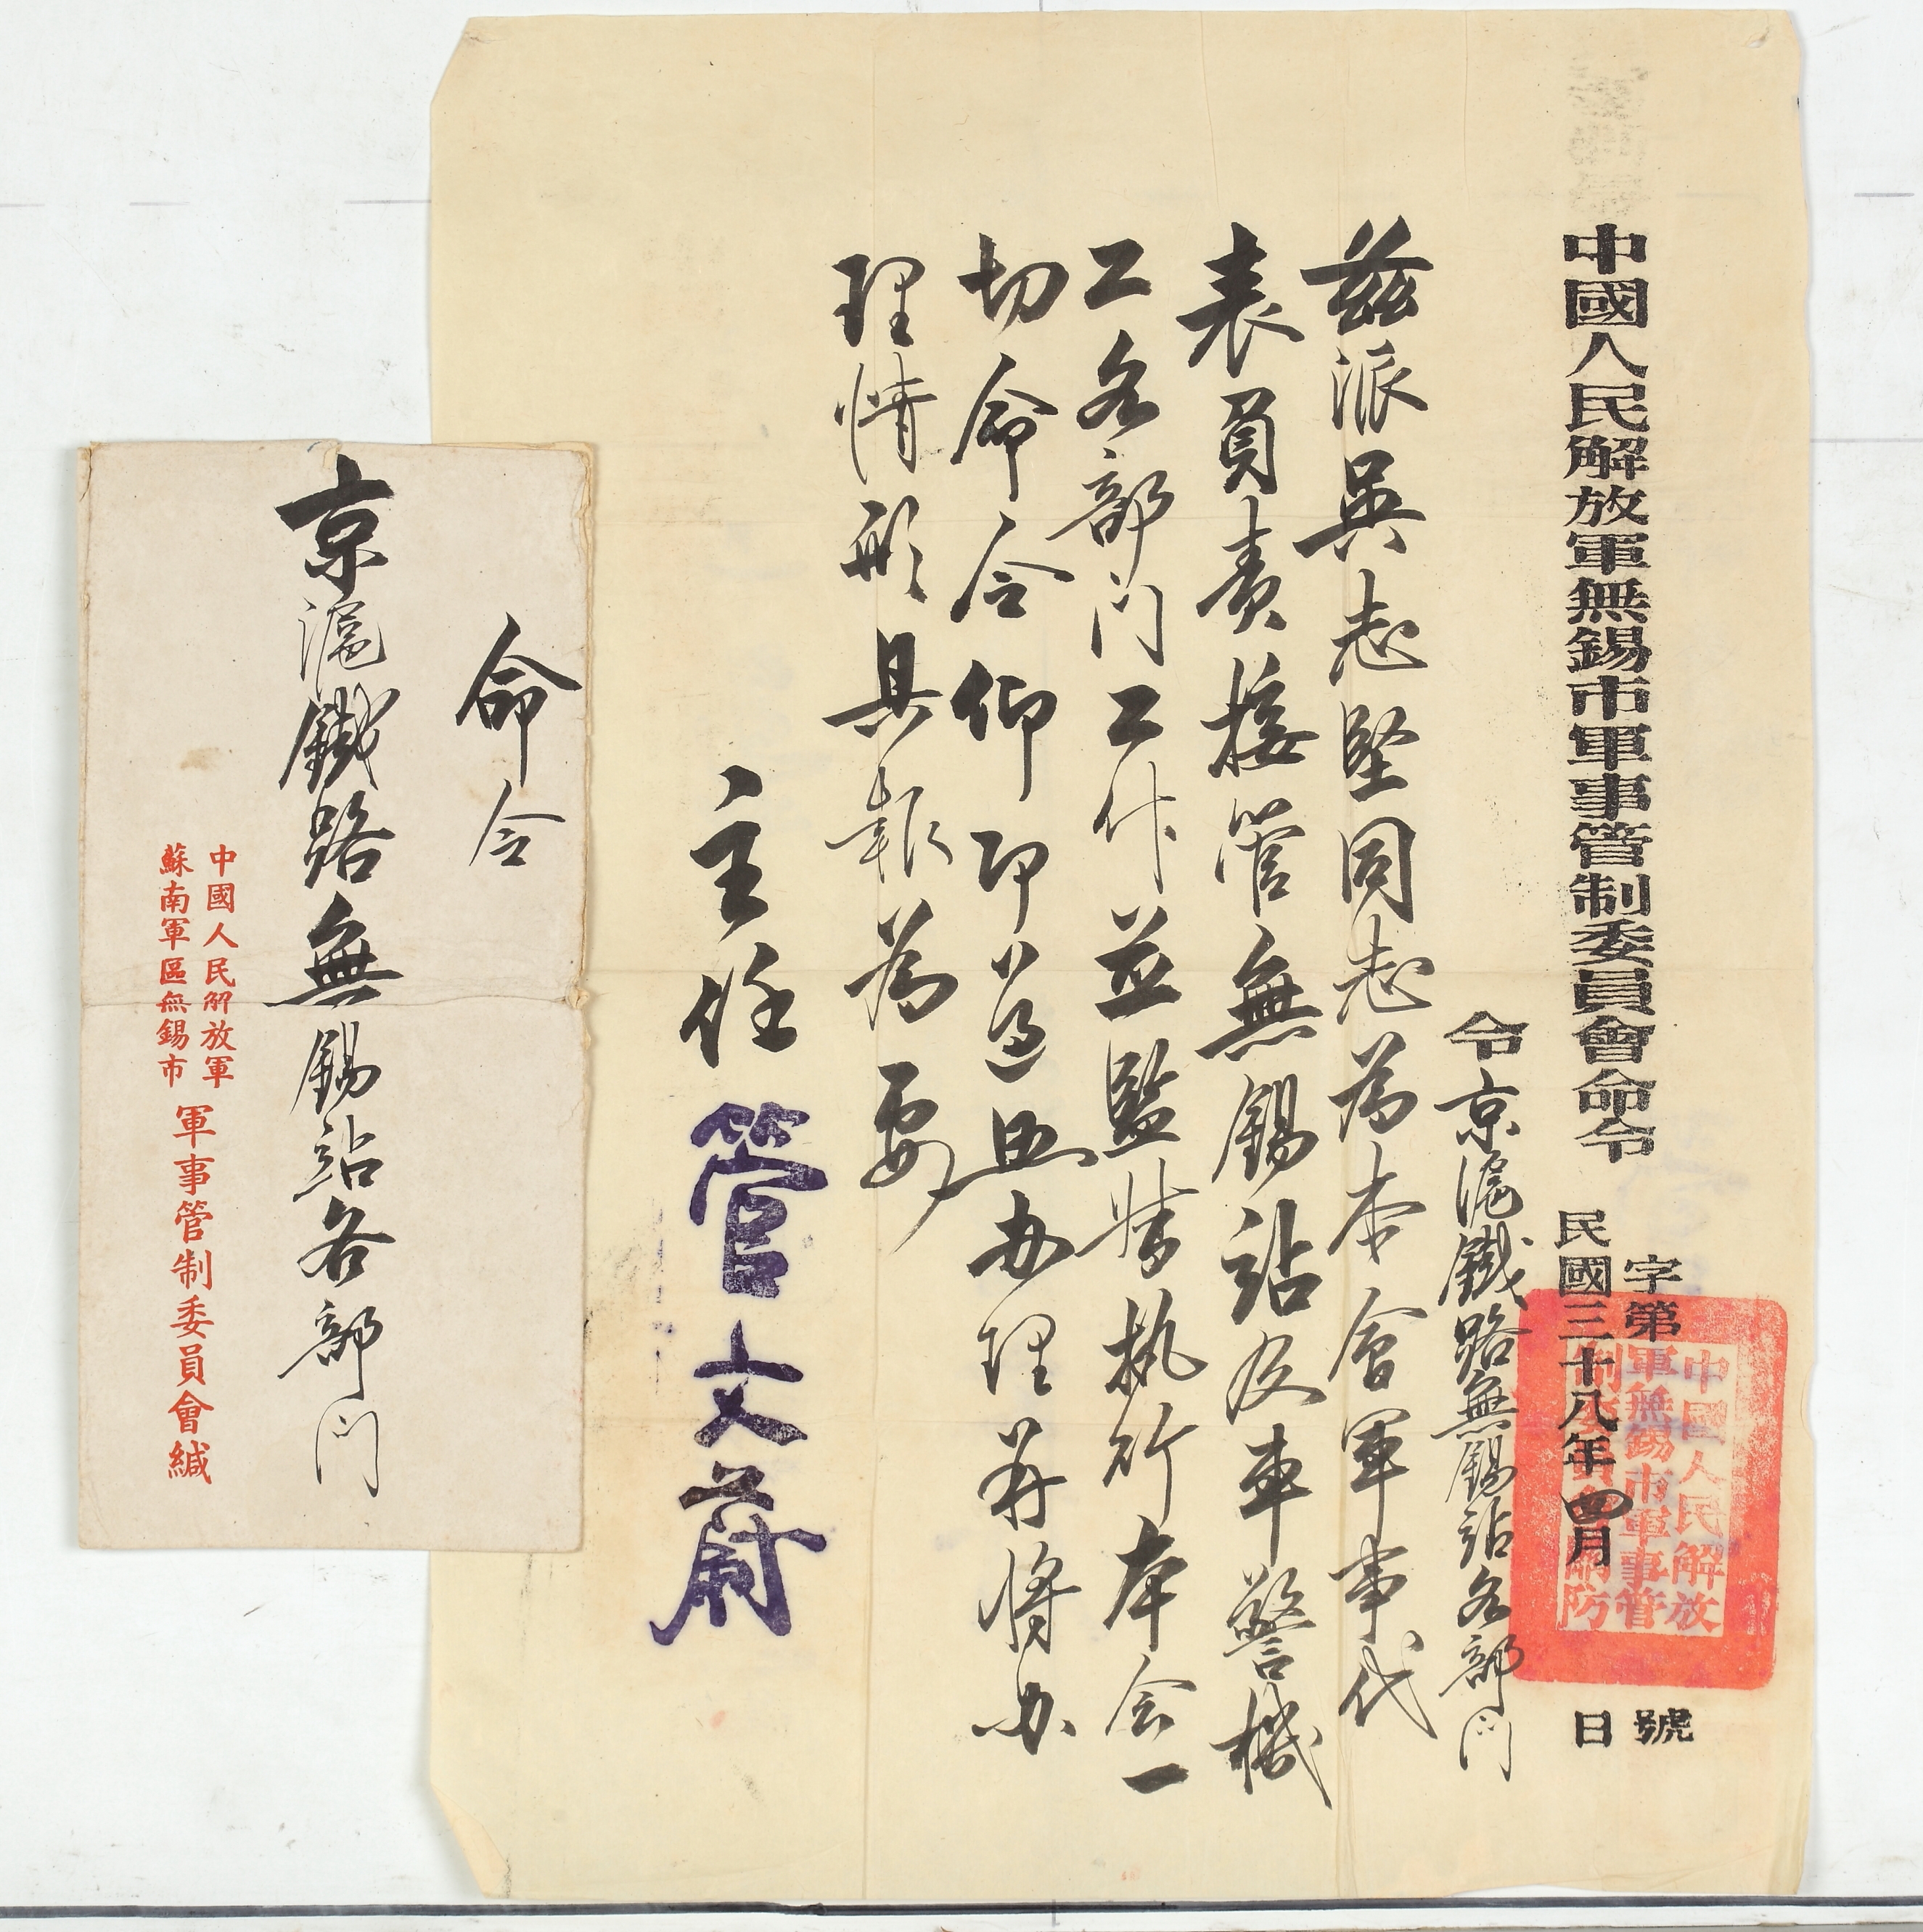 中國人民解放軍無錫市軍事管制委員會命令
字第 號
民國三十八年四月 日
中國人民解放
軍無錫市軍事管
制委員會關防
令京滬鐵路無錫站各部門
茲派吳志堅同志為本會軍事代
表負責接管無錫站及車警機
工各部門工作並監督執行本会一
切命令仰即遵照办理并将办
理情形具報為要
主任管文蔚
命令
京滬鐵路無錫站各部門
中國人民解放軍
蘇南軍區無錫市
軍事管制委員會緘